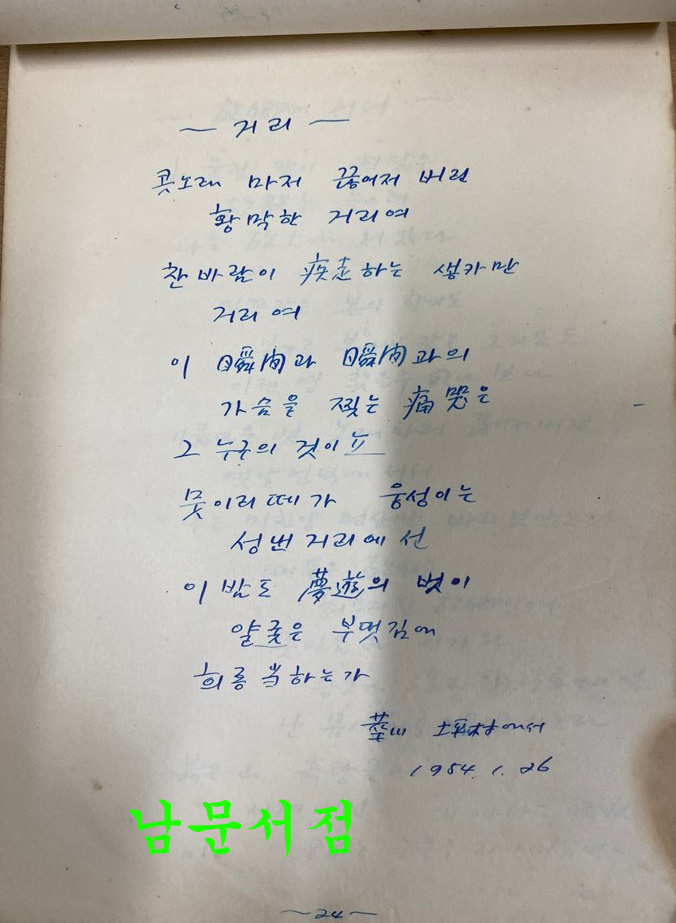 ― 거리 ―
콧노래 마저 끊어저 버린
황막한 거리여
찬바람이 疾走하는 생카만
거리여
이 瞬间과 瞬间과의
가슴을 찢는 痛哭은
그 누구의 것이뇨
뭇이리떼가 웅성이는
성낸거리에 선
이 밤도 夢遊의 벗이
얄궂은 부멋김에
희롱 当하는가
華川 坪村에서
1954. 1. 26
남문서점
―24―